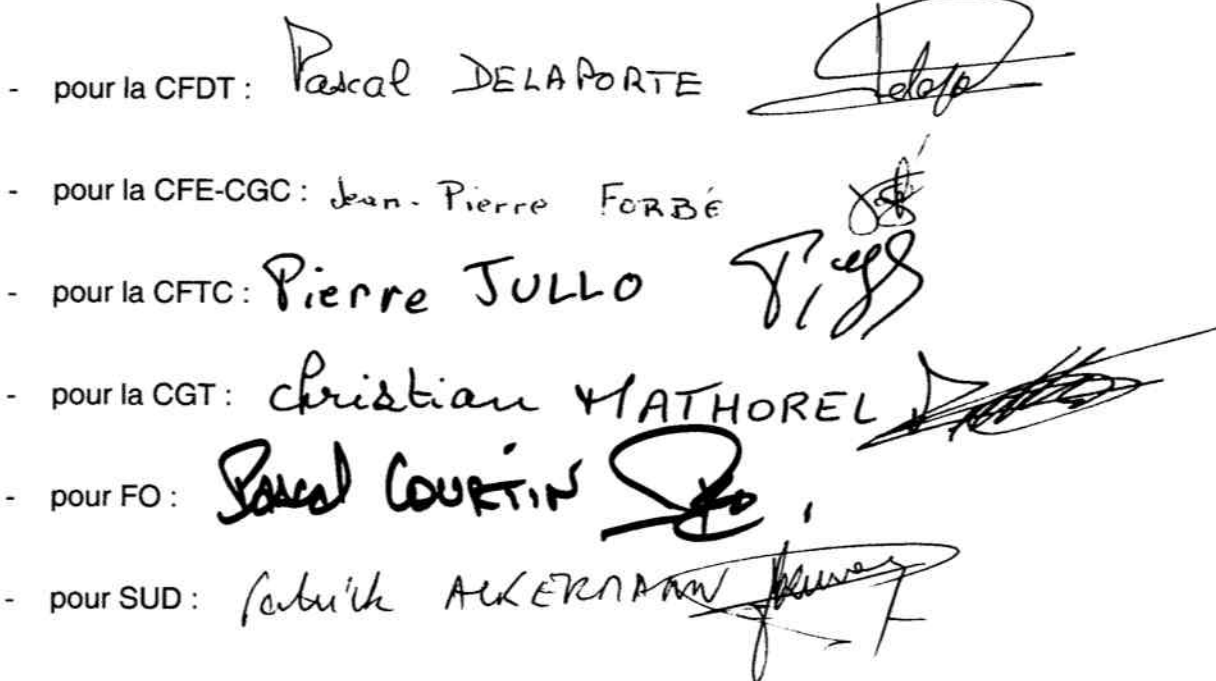 - pour la CFDT : Pascal DELAPORTE
- pour la CFE-CGC : Jean-Pierre FORBÉ
- pour la CFTC : Pierre JULLO
- pour la CGT : Christian MATHOREL
- pour FO : Pascal COURTIN
- pour SUD : Patrick ACKERMANN